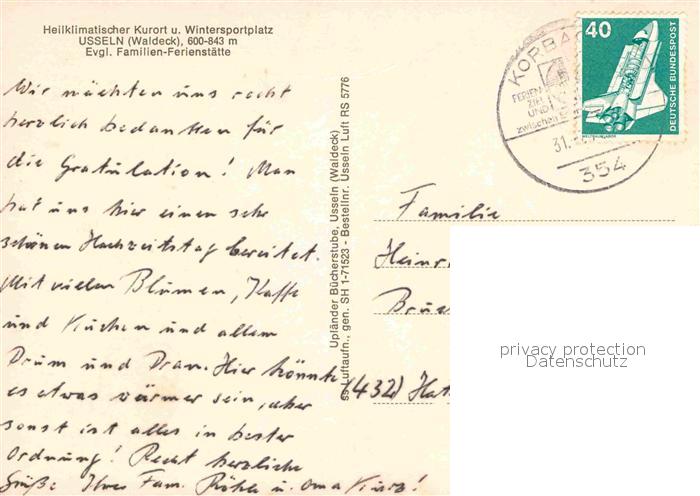 Heilklimatischer Kurort u. Wintersportplatz
USSELN (Waldeck), 600-843 m
Evgl. Familien-Ferienstätte
Wir möchten uns recht
herzlich bedanken für
die Gratulation! Man
hat uns hier einen sehr
schönen Hochzeitstag bereitet.
Mit vielen Blumen, Kaffe
und Kuchen und allem
Drum und Dran. Hier könnte
es etwas wärmer sein, aber
sonst ist alles in bester
Ordnung! Recht herzliche
Grüße Ihre Fam. u. Oma
Upländer Bücherstube, Usseln (Waldeck)
ss Luftaufn., gen. SH 1-71523 - Bestellnr. Usseln Luft RS 5776
KORBA
FERIEN
ZIEL
UND
zwischen
31.
354
40
DEUTSCHE BUNDESPOST
WELTRAUMLABOR
Familie
Heinr
(432) Hat
privacy protection
Datenschutz